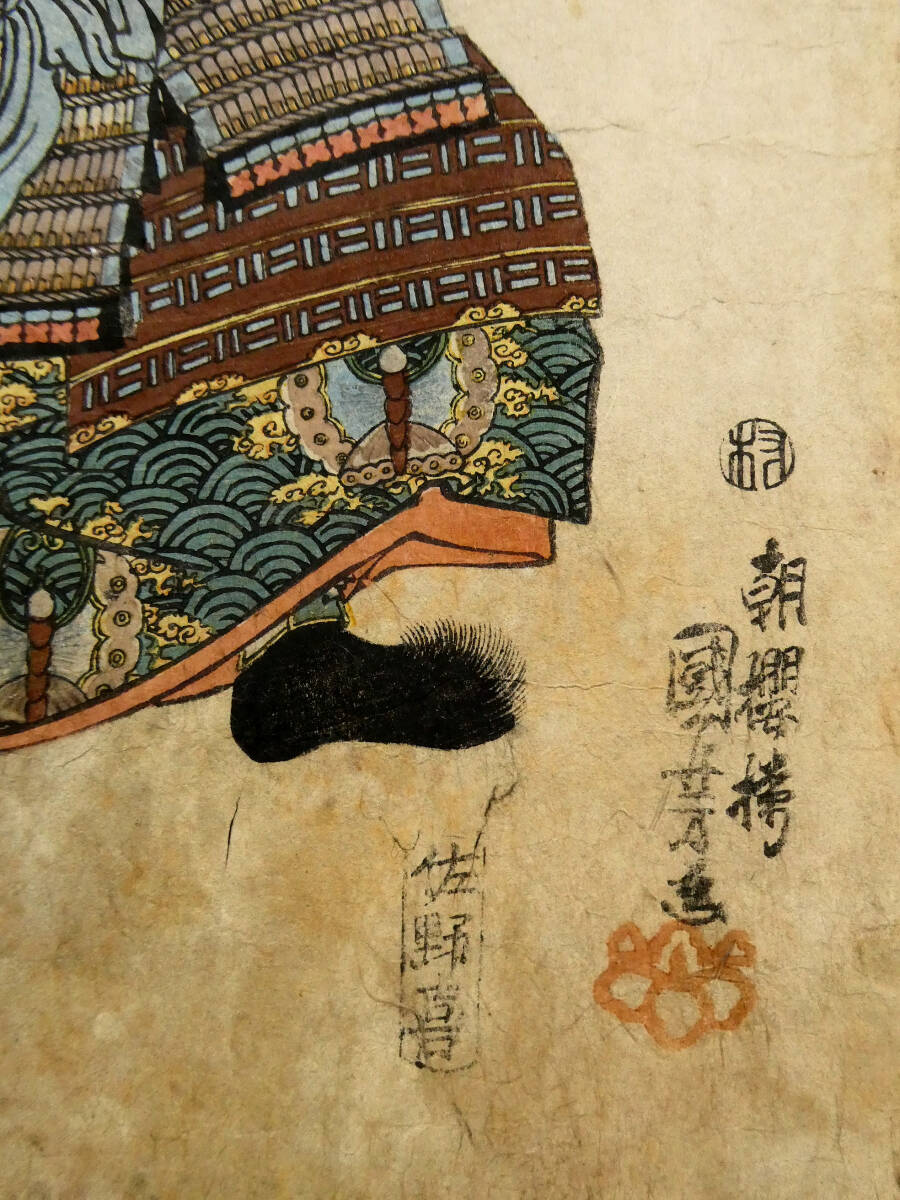 村
朝櫻楼
國芳画
佐野喜